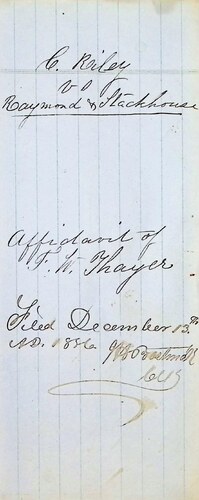 C. Riley
vs
Raymond & Stackhouse
Affidavit of
T. W. Thayer
Filed December 13th
A.D. 1856
Clk